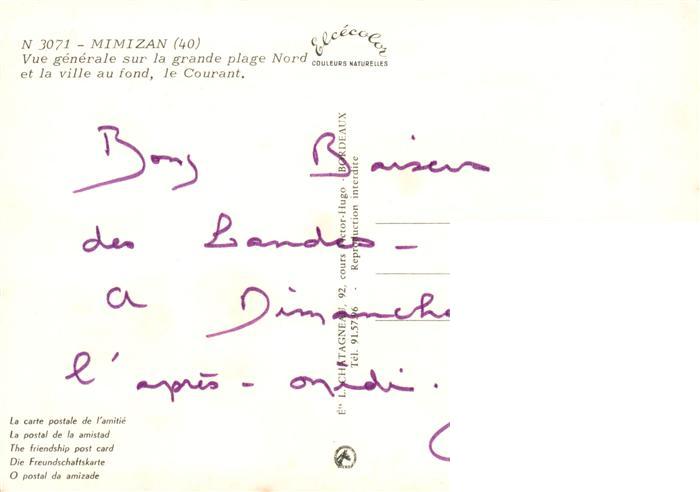 N 3071 - MIMIZAN (40)
Vue générale sur la grande plage Nord
et la ville au fond, le Courant.
Elcécolor
COULEURS NATURELLES
Bons Baisers
des Landes -
A Dimanche
l'après-midi.
Éts L. CHATAGNEAU, 92, cours Victor-Hugo - BORDEAUX
Tél. 91.57.96 . Reproduction interdite
La carte postale de l'amitié
La postal de la amistad
The friendship post card
Die Freundschaftskarte
O postal da amizade